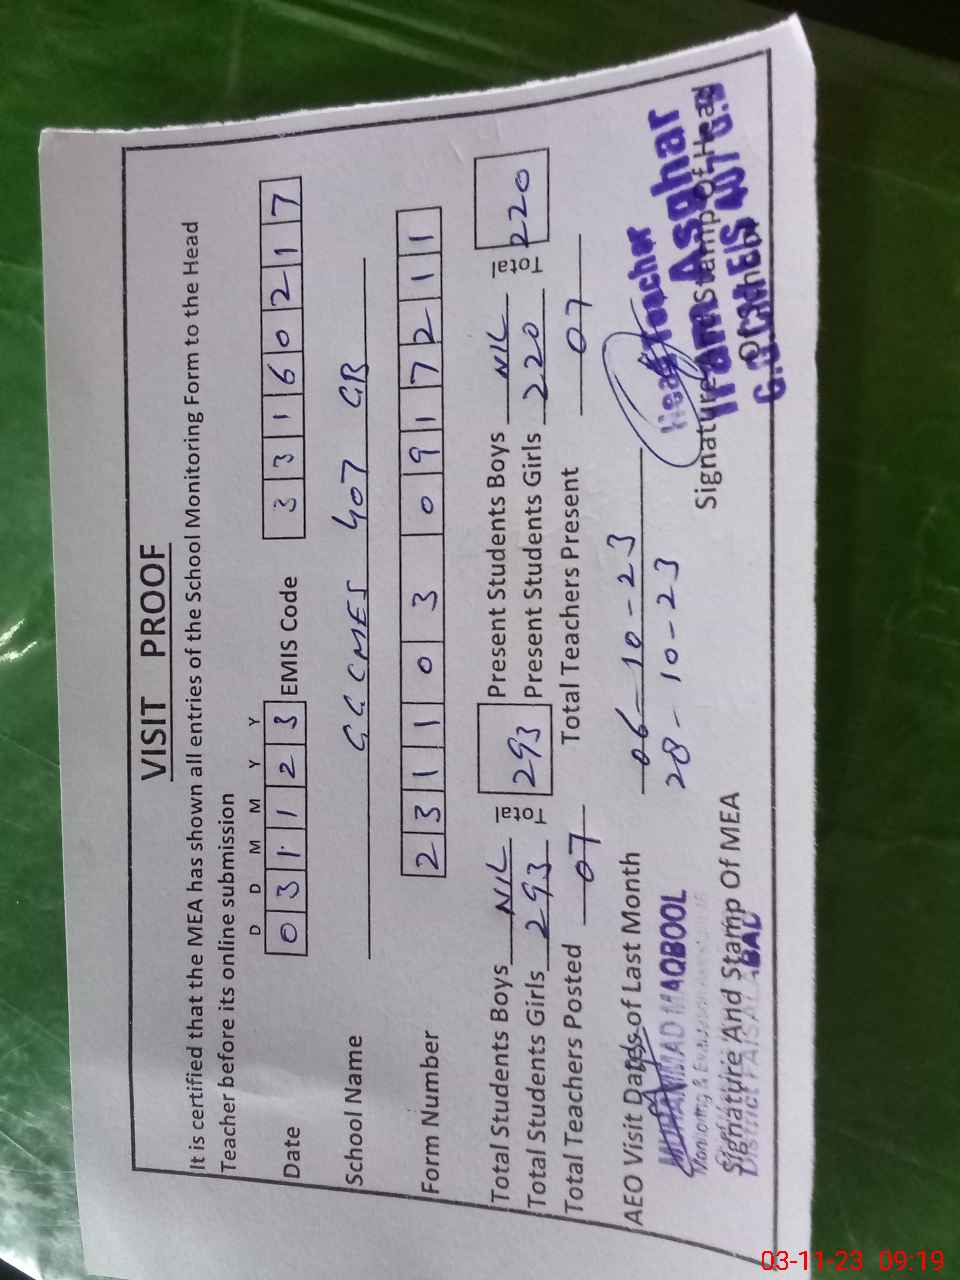 VISIT PROOF
It is certified that the MEA has shown all entries of the School Monitoring Form to the Head
Teacher before its online submission
D D M M Y Y
Date 031123 EMIS Code 33160217
School Name GGCMES 407 GB
Form Number 2311030917211
Total Students Boys NIL Total 293 Present Students Boys NIL Total 220
Total Students Girls 293 Present Students Girls 220
Total Teachers Posted 07 Total Teachers Present 07
AEO Visit Dates of Last Month 06-10-23
28-10-23
MUHAMMAD MAQBOOL
Monitoring & Evaluation
District FAISALABAD
Signature And Stamp Of MEA
Head Teacher
Iram Asghar
407 G.B
Signature And Stamp Of Head
Of School
03-11-23 09:19